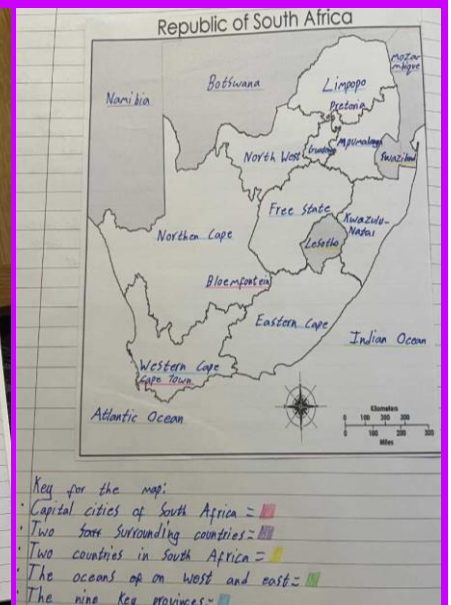 Republic of South Africa
Mozam-
bique
Botswana
Limpopo
Namibia
Pretoria
Mpumalanga
North West
Gauteng
Swaziland
Free State
Kwazulu-
Natal
Northen Cape
Lesotho
Bloemfontein
Eastern Cape
Indian Ocean
Western Cape
Cape Town
Atlantic Ocean
Kilometers
0 100 200 300
0 100 200 300
Miles
Key for the map:
· Capital cities of South Africa =
· Two surrounding countries =
· Two countries in South Africa =
· The oceans on west and east =
· The nine key provinces =